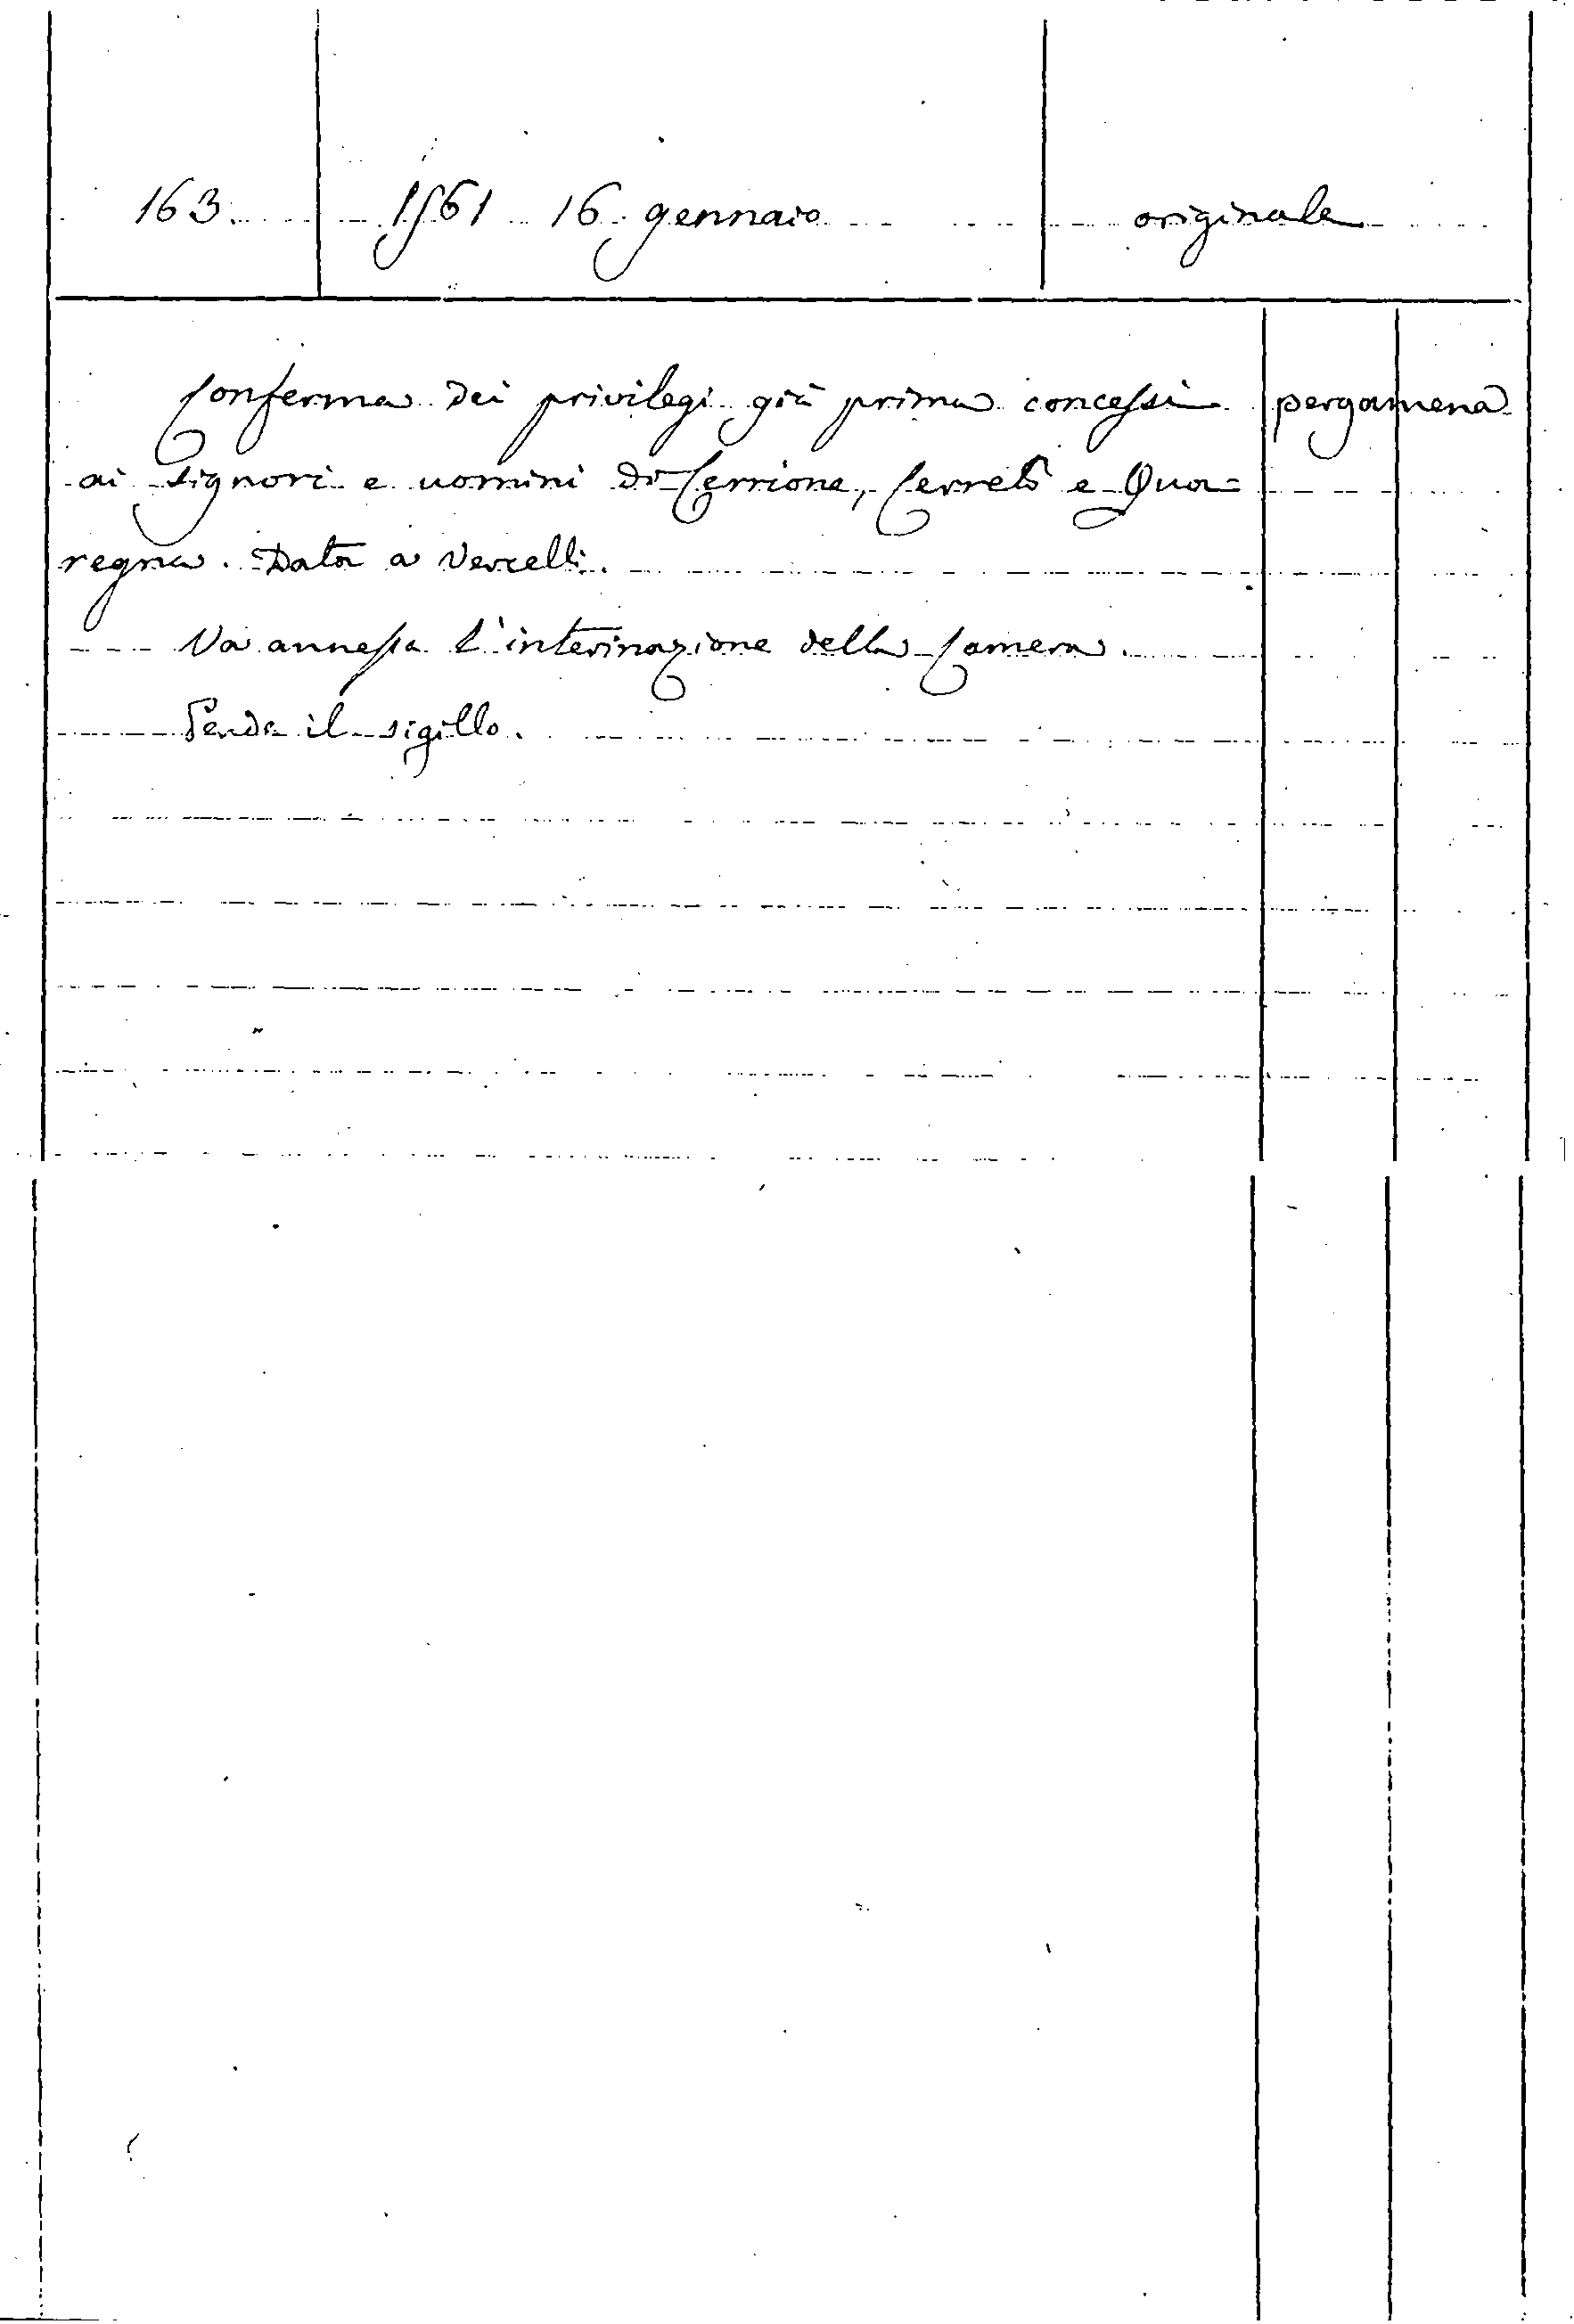 163. 1561 16 gennaio originale
Conferma dei privilegi già prima concessi pergamena
ai Signori e uomini di Cerrione, Cerreto e Qua=
regna. Data a Vercelli.
Va annessa l'interinazione della Camera.
Pende il sigillo.